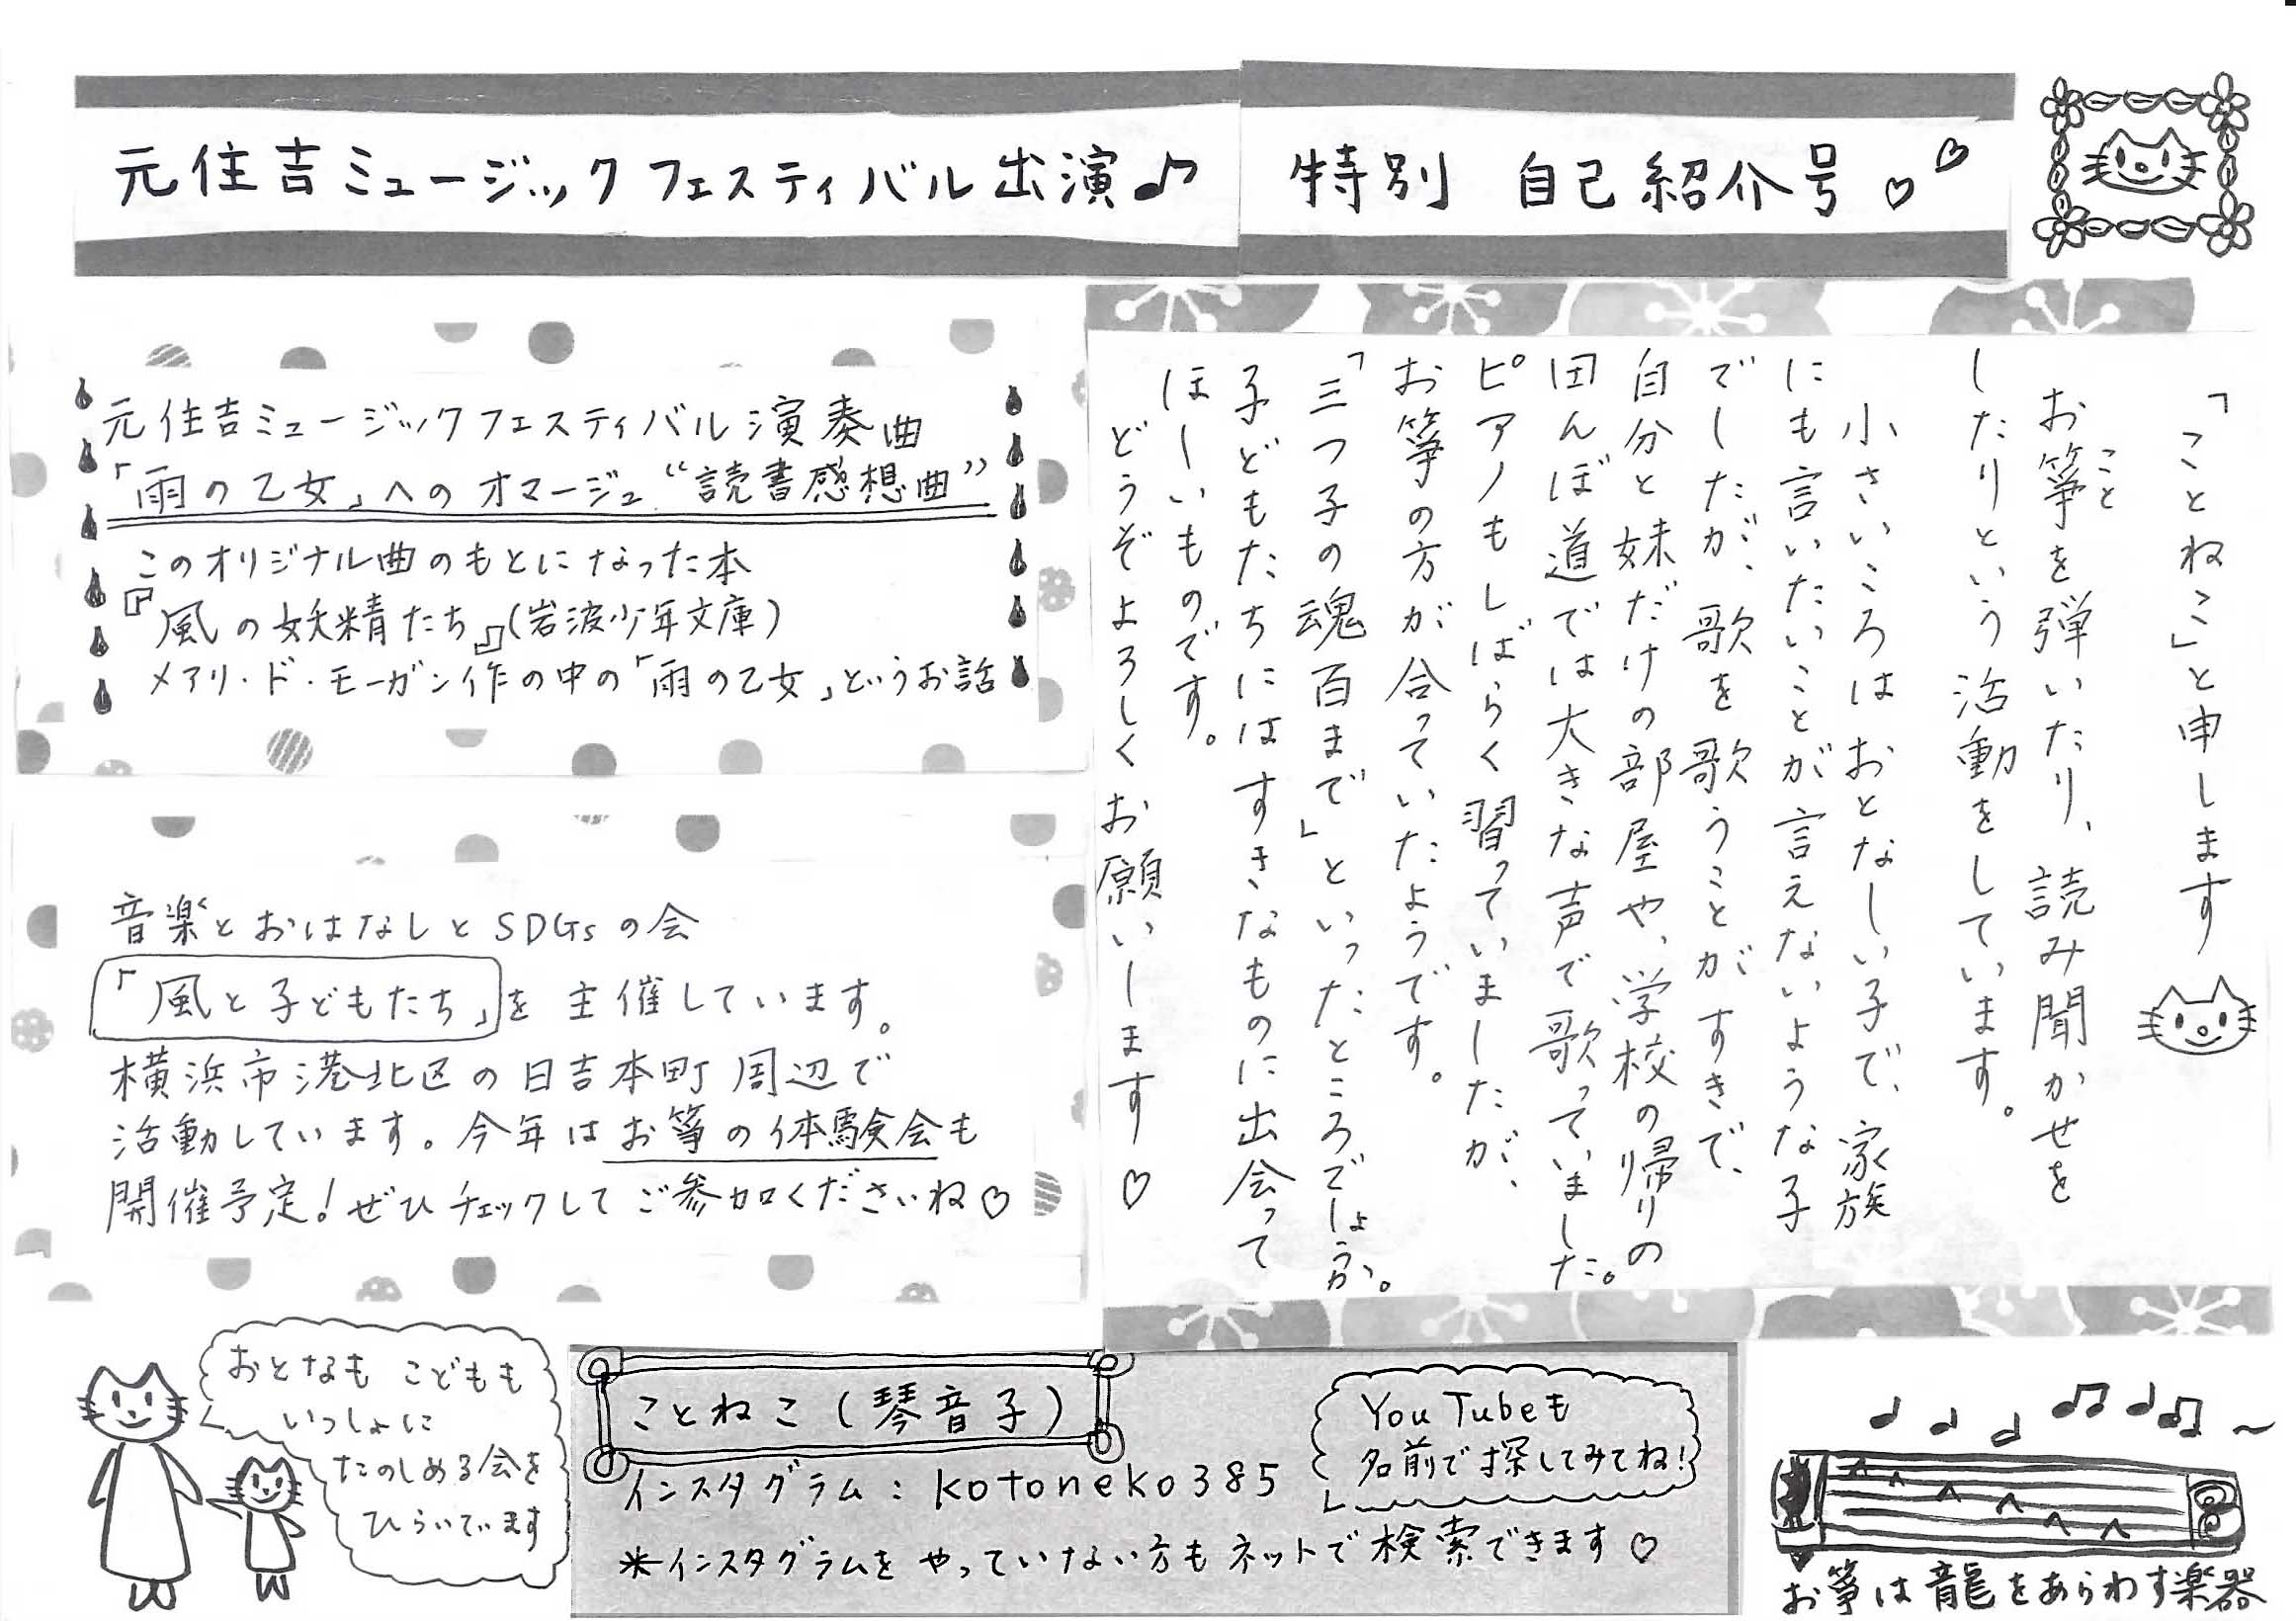 元住吉ミュージックフェスティバル出演♪ 特別 自己紹介号♡♡
「ことねこ」と申します
お箏を弾いたり、読み聞かせを
こと
したりという活動をしています。
小さいころはおとなしい子で、家族
にも言いたいことが言えないような子
でしたが、歌を歌うことがすきで、
自分と妹だけの部屋や、学校の帰りの
田んぼ道では大きな声で歌っていました。
ピアノもしばらく習っていましたが、
お箏の方が合っていたようです。
「三つ子の魂百まで」といったところでしょうか。
子どもたちにはすきなものに出会って
ほしいものです。
どうぞよろしくお願いします♡
元住吉ミュージックフェスティバル演奏曲
「雨の乙女」へのオマージュ“読書感想曲”
このオリジナル曲のもとになった本
『風の妖精たち』(岩波少年文庫)
メアリ・ド・モーガン作の中の「雨の乙女」というお話
音楽とおはなしとSDGsの会
「風と子どもたち」を主催しています。
横浜市港北区の日吉本町周辺で
活動しています。今年はお箏の体験会も
開催予定!ぜひチェックしてご参加くださいね♡
おとなも こどもも
いっしょに
たのしめる会を
ひらいています
ことねこ(琴音子)
インスタグラム:kotoneko385
*インスタグラムをやっていない方もネットで検索できます♡
YouTubeも
名前で探してみてね!
お箏は龍をあらわす楽器